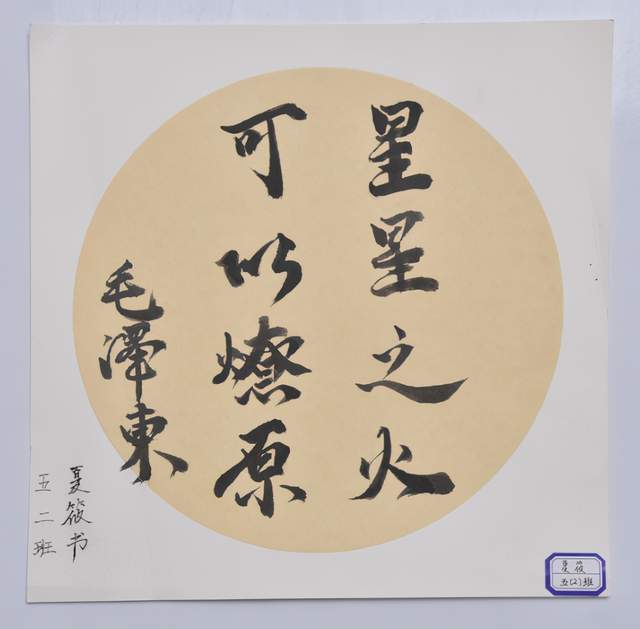 星星之火
可以燎原
毛澤東
夏筱书
五二班
夏筱
五(2)班